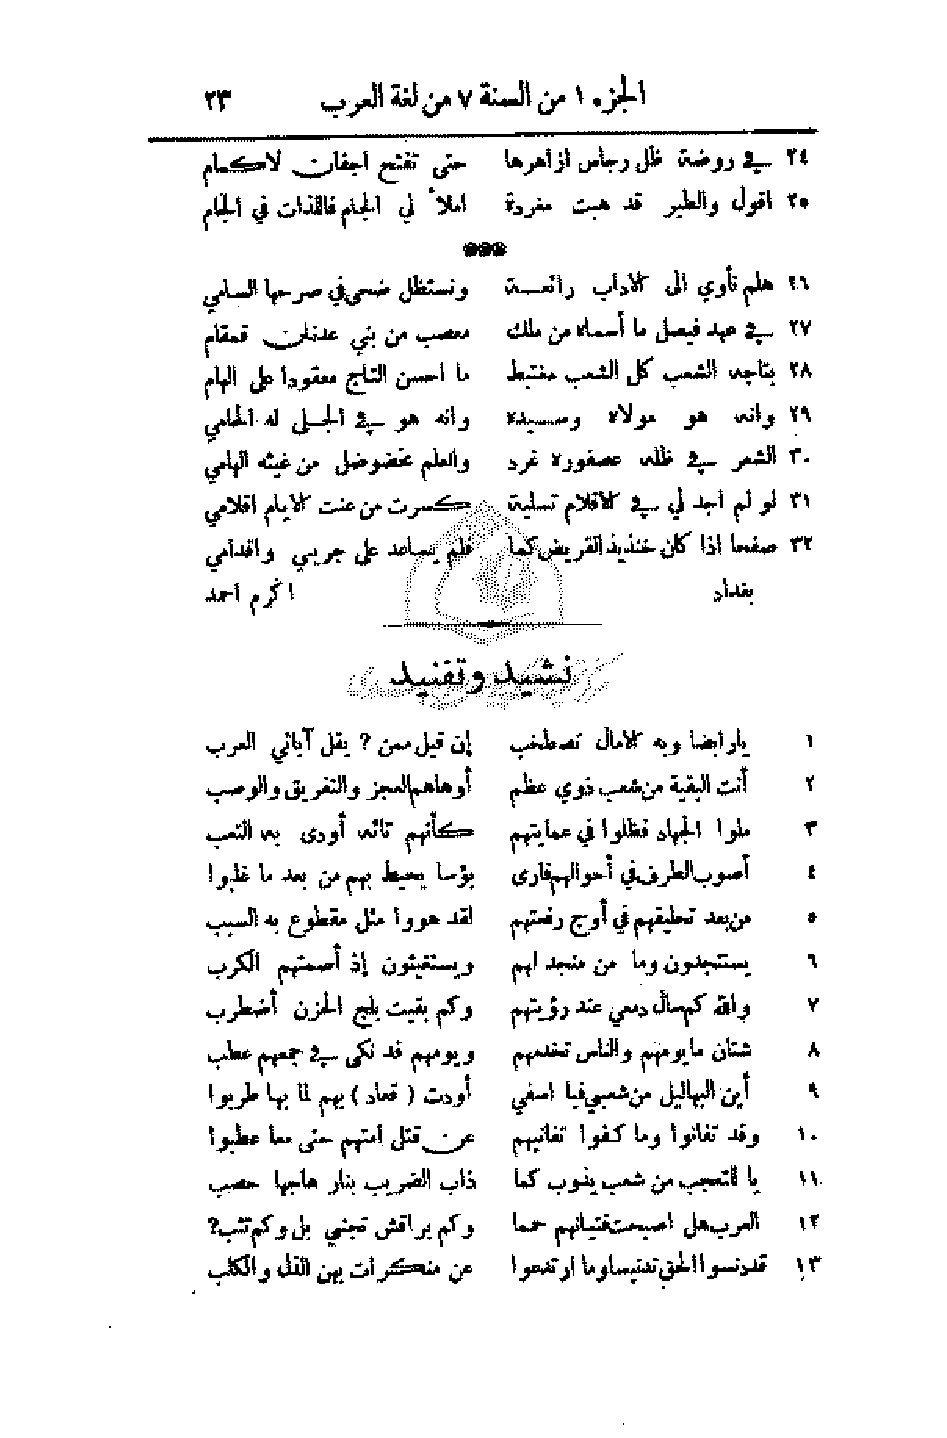 الجزء ١ من السنة ٧ من لغة العرب ٢٣
٢٤ في روضة ظل رجاس ازاهرها حتى تفتح اجفان لاكمام
٢٥ اقول والطير قد هبت مغردة املأ لي الجام فاللذات في الجام
***
٢٦ هلم نأوي الى الاداب رائعة ونستظل ضحى في صرحها السامي
٢٧ في عهد فيصل ما أسماه من ملك معصب من بني عدنان قمقام
٢٨ بتاجه الشعب كل الشعب مغتبط ما احسن التاج معقودا على الهام
٢٩ وانه هو مولاه وسيده وانه هو في الجلى له الحامي
٣٠ الشعر في ظله عصفوره غرد والعلم مخضوضل من غيثه الهامي
٣١ لو لم اجد لي في الاقلام تسلية كسرت من عنت الايام اقلامي
٣٢ صفحا اذا كان خنذيذ القريض كبا فلم يساعد على جريي واقدامي
بغداد اكرم احمد
نشيد وتفنيد
١ يارابضا وبه الامال تصطخب إن قيل ممن ? يقل آبائي العرب
٢ أنت البقية من شعب ذوي عظم أوهاهم العجز والتفريق والوصب
٣ ملوا الجهاد فظلوا في عمايتهم كأنهم تائه أودى به التعب
٤ أصوب الطرف في أحوالهم فارى بؤسا يحيط بهم من بعد ما غلبوا
٥ من بعد تحليقهم في أوج رفعتهم لقد هووا مثل مقطوع به السبب
٦ يستنجدون وما من منجد لهم ويستغيثون إذ أصمتهم الكرب
٧ والله كم سال دمعي عند رؤيتهم وكم بقيت بلج الحزن أضطرب
٨ شتان ما يومهم والناس تخدمهم ويومهم قد نكى في جمعهم عطب
٩ أين البهاليل من شعبي فيا اسفي أودت ( قعاد ) بهم لما بها طربوا
١٠ وقد تفانوا وما كفوا تفانيهم عن قتل امتهم حتى معا عطبوا
١١ يا للتعجب من شعب يذوب كما ذاب الضريب بنار هاجها حصب
١٢ العرب هل اصبحت فتيانهم حمما وكم براقش تجني بل وكم تثب?
١٣ قد دنسوا الحق تدنيسا وما ارتدعوا عن منكرات بهن الغل والكلب